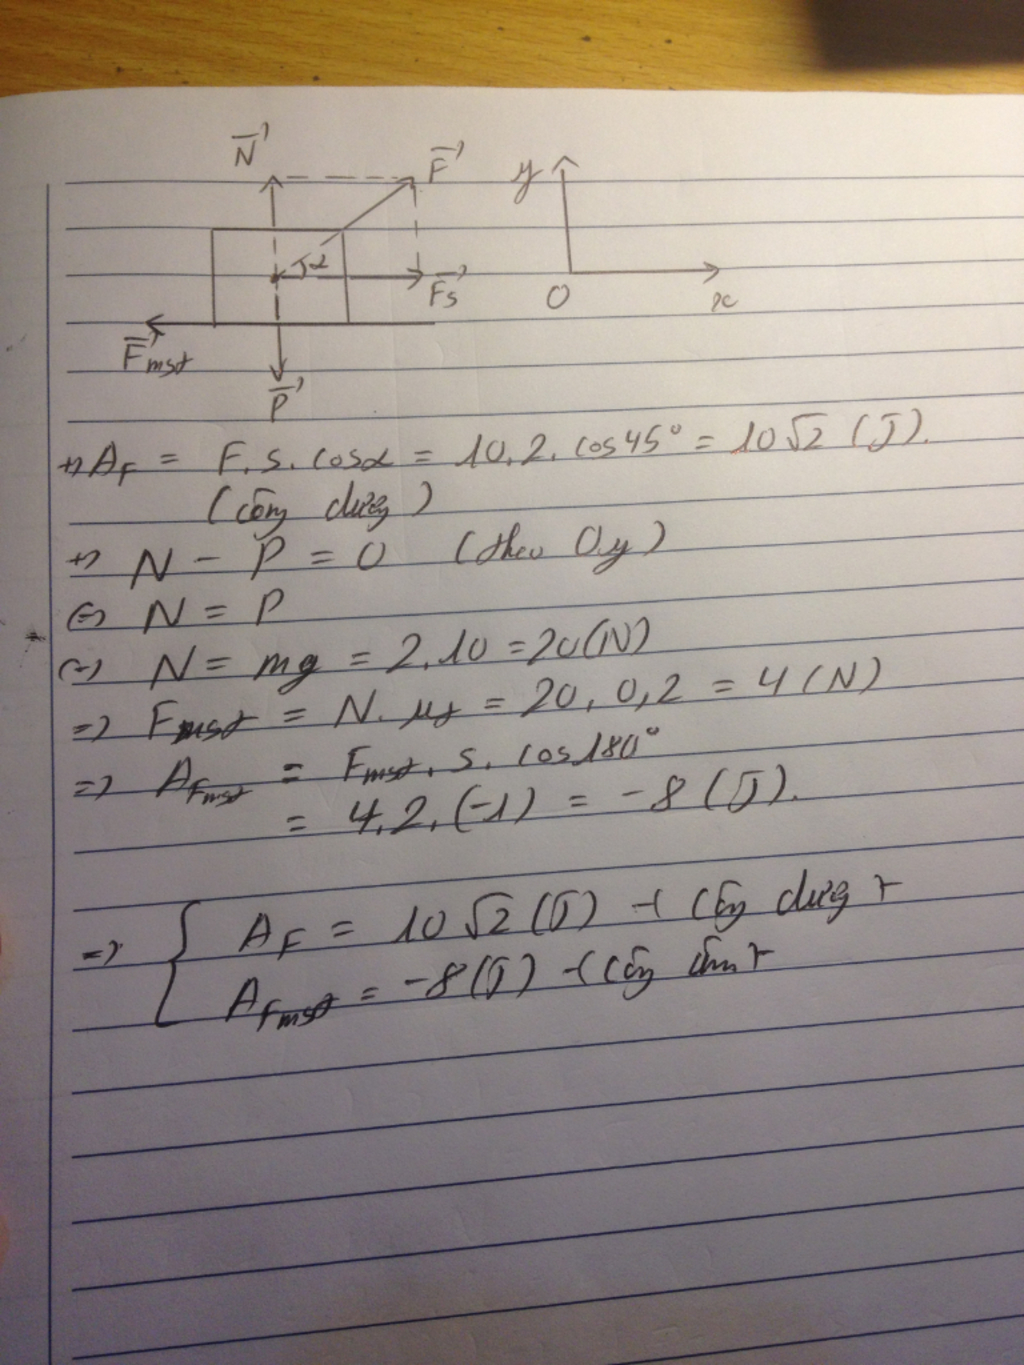 N⃗
F⃗
y
α
F⃗s
O
x
F⃗mst
P⃗
+) A_F = F.s.cosα = 10.2.cos45° = 10√2 (J).
(công dương)
+) N - P = 0 (theo Oy)
(=) N = P
(=) N = mg = 2.10 = 20(N)
=) Fmst = N.μt = 20.0,2 = 4 (N)
=) A_Fmst = Fmst.s.cos180°
= 4.2.(-1) = -8 (J).
=) { A_F = 10√2 (J) -(công dương)-
A_Fmst = -8(J) -(công âm)-